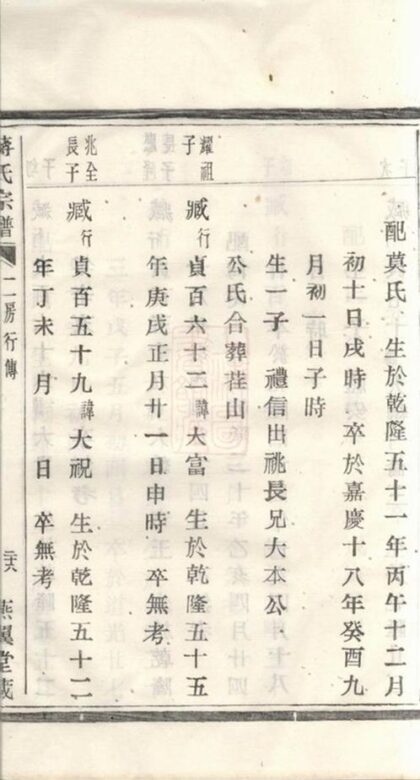 配莫氏 生於乾隆五十一年丙午十二月
初十日戌時卒於嘉慶十八年癸酉九
月初一日子時
生一子 禮信出祧長兄大本公
公氏合葬茬山
耀祖
子
臧行貞百六十二諱大富 生於乾隆五十五
年庚戌正月廿一日申時 卒無考
兆全
長子
臧行貞百五十九諱大祝 生於乾隆五十二
年丁未十月 日 卒無考
蔣氏宗譜 二房行傳 燕翼堂藏